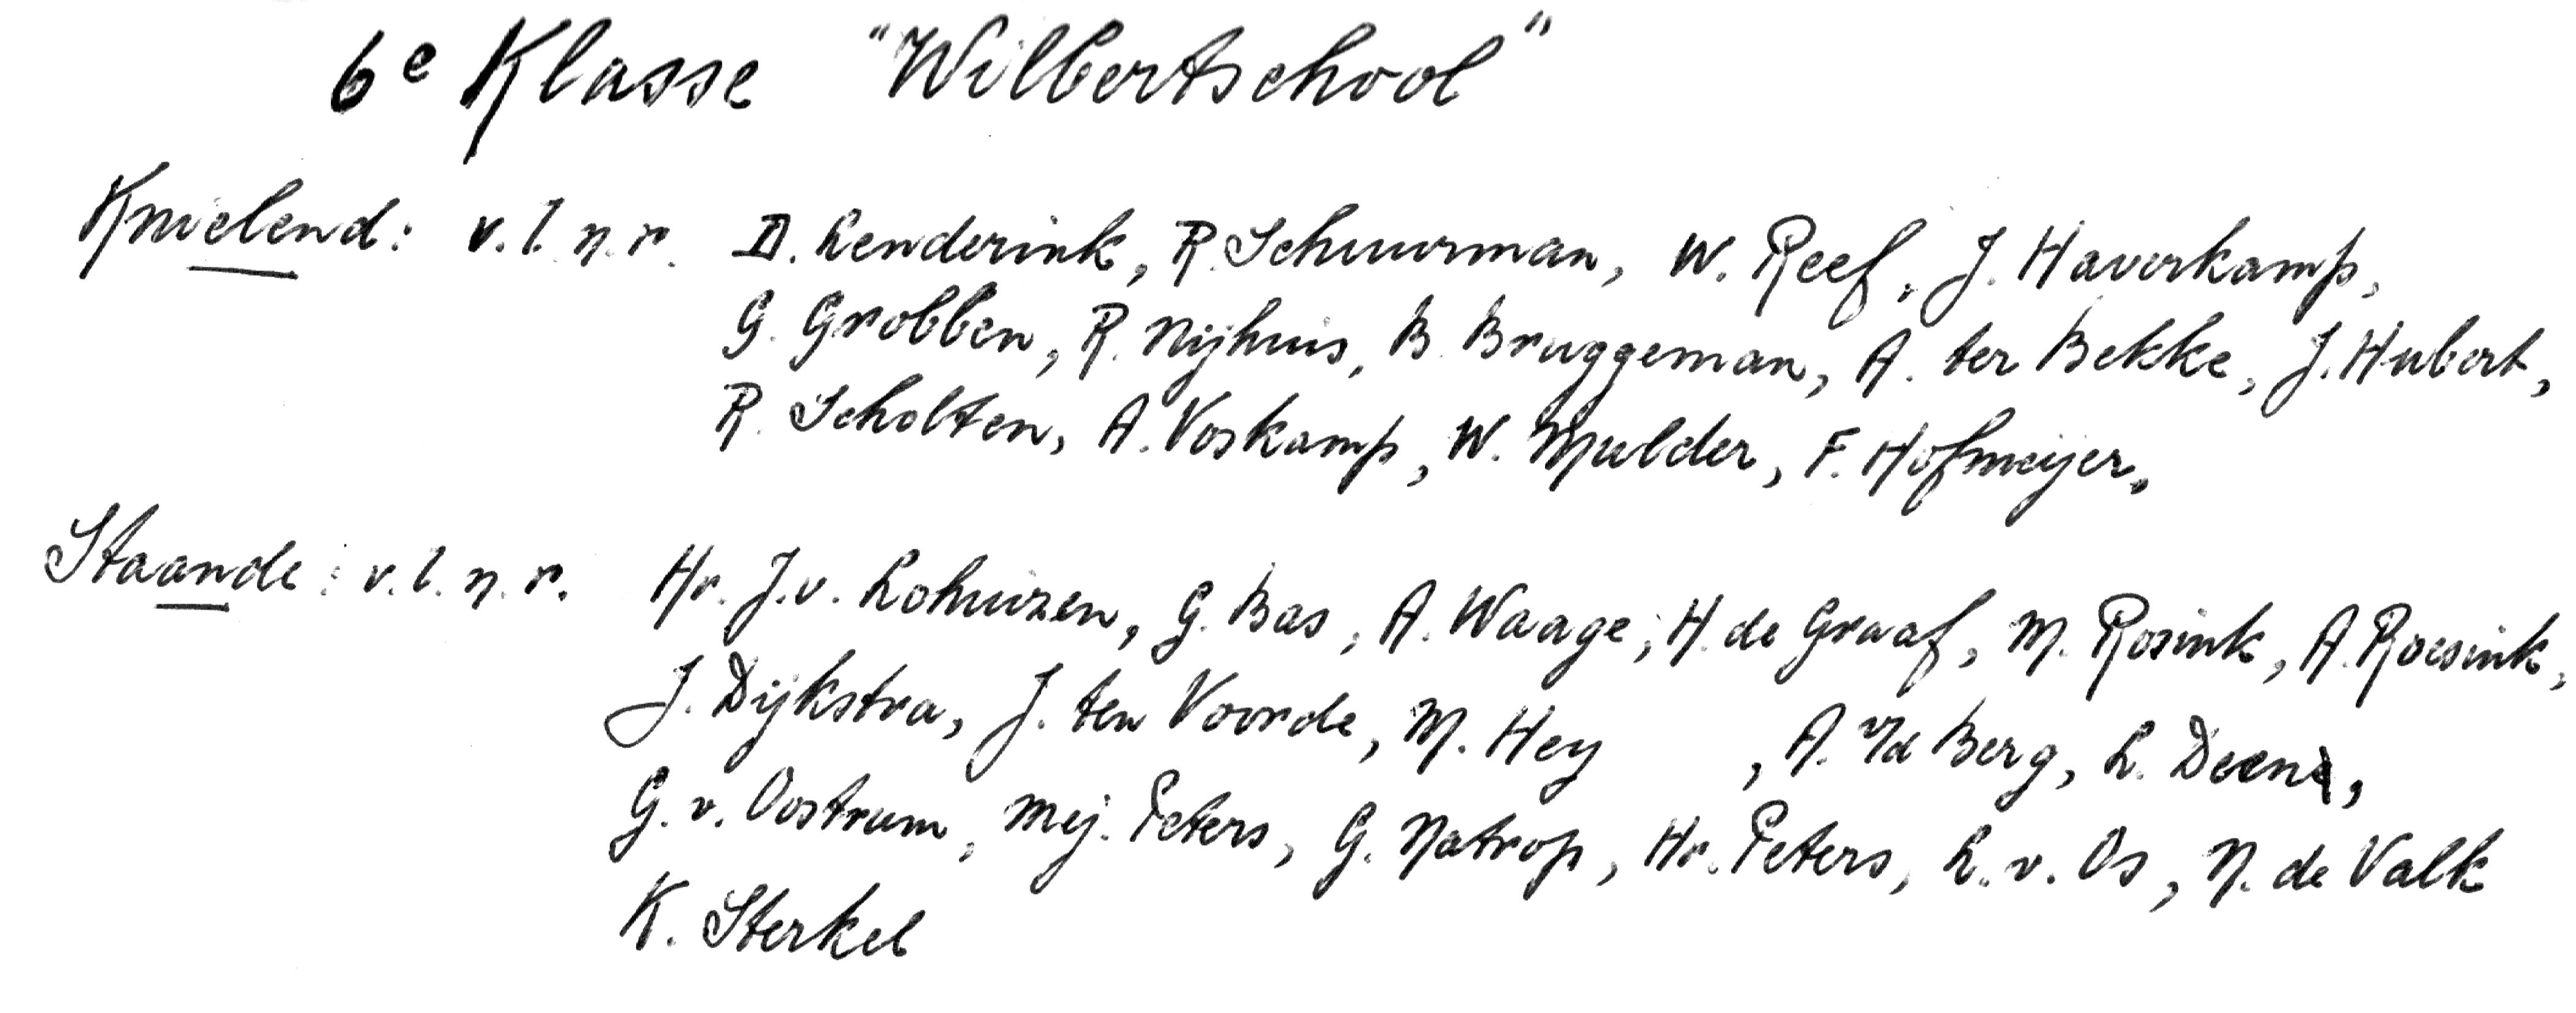 6e Klasse "Wilbertschool"
Knielend: v.l.n.r. D. Lenderink, R. Schuurman, W. Reef, J. Haverkamp,
G. Grobben, R. Nijhuis, B. Bruggeman, A. ter Bekke, J. Hubert,
R. Scholten, A. Voskamp, W. Mulder, F. Hofmeijer.
Staande: v.l.n.r. Hr. J.v. Lohuizen, G. Bas, A. Waage, H. de Graaf, M. Rosink, A. Roesink,
J. Dijkstra, J. ten Voorde, M. Hey , A. v/d Berg, L. Deen,
G. v. Oostrum, Mej. Peters, G. Natrop, Hr. Peters, L. v. Os, N. de Valk
K. Sterkel